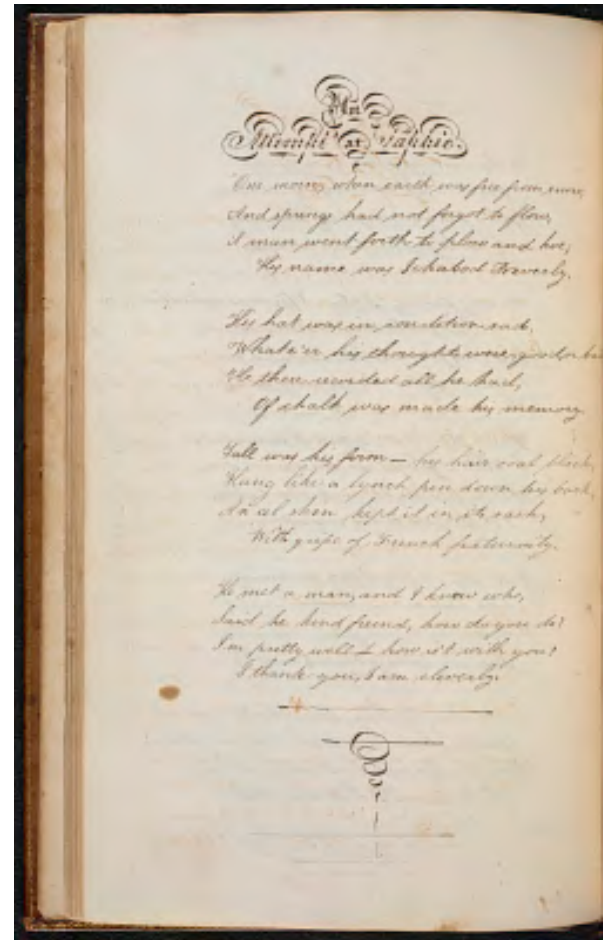 An
Attempt at Sapphic.
One morn, when earth was free from snow,
And springs had not forgot to flow,
A man went forth to plow and hoe,
His name was Ichabod
His hat was in condition sad,
Whate'er his thoughts were, good or
He then recorded all he had,
Of chalk was made his memory.
Tall was his form — his hair coal black,
Hung like a lynch pin down his back,
An eel skin kept it in its rack,
With gripe of French fraternity.
He met a man, and I know who,
Said he kind friend, how do you do?
I'm pretty well — how is't with you?
I thank you, I am cleverly.